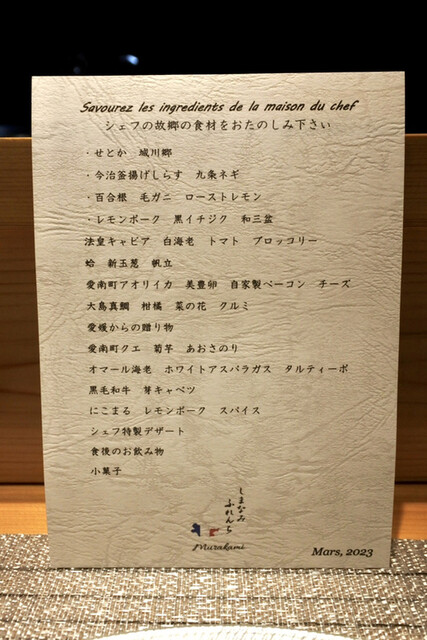 Savourez les ingredients de la maison du chef
シェフの故郷の食材をおたのしみ下さい
・せとか 城川郷
・今治釜揚げしらす 九条ネギ
・百合根 毛ガニ ローストレモン
・レモンポーク 黒イチジク 和三盆
法皇キャビア 白海老 トマト ブロッコリー
蛤 新玉葱 帆立
愛南町アオリイカ 美豊卵 自家製ベーコン チーズ
大島真鯛 柑橘 菜の花 クルミ
愛媛からの贈り物
愛南町クエ 菊芋 あおさのり
オマール海老 ホワイトアスパラガス タルティーボ
黒毛和牛 芽キャベツ
にこまる レモンポーク スパイス
シェフ特製デザート
食後のお飲み物
小菓子
しまなみ
ふれんち
Murakami
Mars, 2023